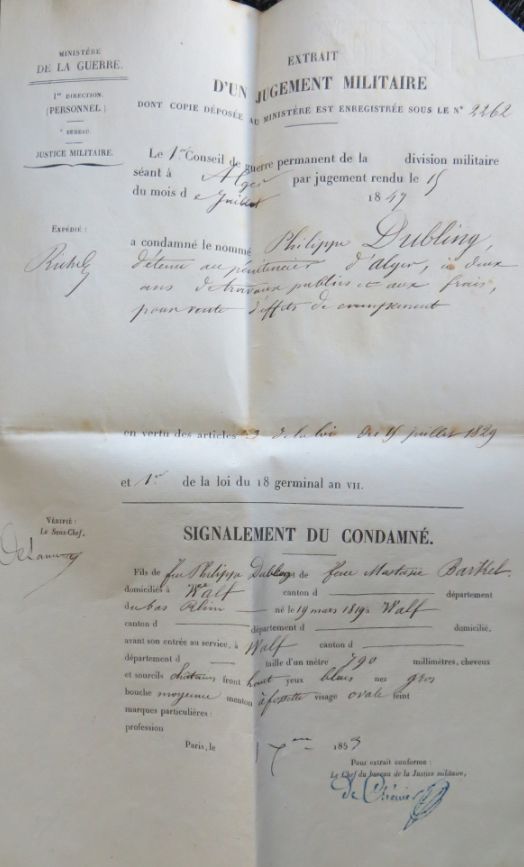 MINISTÈRE
DE LA GUERRE.
1re DIRECTION.
(PERSONNEL.)
BUREAU.
JUSTICE MILITAIRE.
EXTRAIT
D'UN JUGEMENT MILITAIRE
DONT COPIE DÉPOSÉE AU MINISTÈRE EST ENREGISTRÉE SOUS LE N° 2262
Le 1er Conseil de guerre permanent de la division militaire
séant à Alger par jugement rendu le 15
du mois de Juillet 1847
EXPÉDIÉ :
a condamné le nommé Philippe Dubling,
détenu au pénitencier d'alger, à deux
ans de travaux publics et aux frais,
pour vente d'effets de campement
en vertu des articles 3 de la loi du 15 juillet 1829
et 1er de la loi du 18 germinal an VII.
VÉRIFIÉ :
Le Sous-Chef.
SIGNALEMENT DU CONDAMNÉ.
Fils de feu Philippe Dubling et de feue Barthel
domiciliés à Walf canton d département
du bas Rhin né le 19 mars Walf
canton d département d domicilié,
avant son entrée au service, à Walf canton d
département d taille d'un mètre 790 millimètres, cheveux
et sourcils châtains front haut yeux bleus nez gros
bouche moyenne menton à fossette visage ovale teint
marques particulières :
profession
Paris, le 185
Pour extrait conforme :
Le Chef du bureau de la Justice militaire,
de Chénier